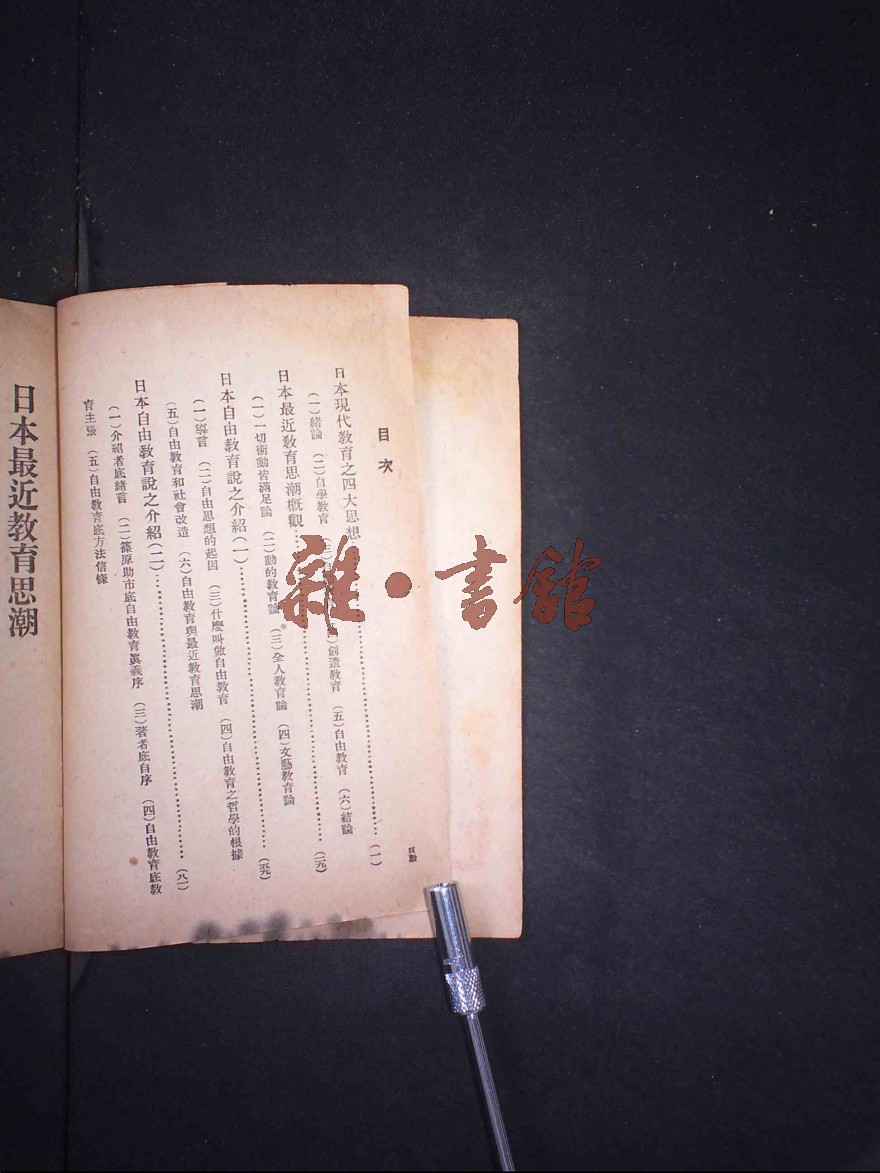 目次
頁數
日本現代教育之四大思想……(一)
(一)緒論 (二)自學教育 (三) 創造教育 (五)自由教育 (六)結論
日本最近教育思潮概觀……(二九)
(一)一切衝動皆滿足論 (二)動的教育論 (三)全人教育論 (四)文藝教育論
日本自由教育說之介紹(一)……(五九)
(一)導言 (二)自由思想的起因 (三)什麼叫做自由教育 (四)自由教育之哲學的根據
(五)自由教育和社會改造 (六)自由教育與最近教育思潮
日本自由教育說之介紹(二)……(八一)
(一)介紹者底緒言 (二)篠原助市底自由教育眞義序 (三)著者底自序 (四)自由教育底教
育主張 (五)自由教育底方法信條
日本最近教育思潮
雜·書館